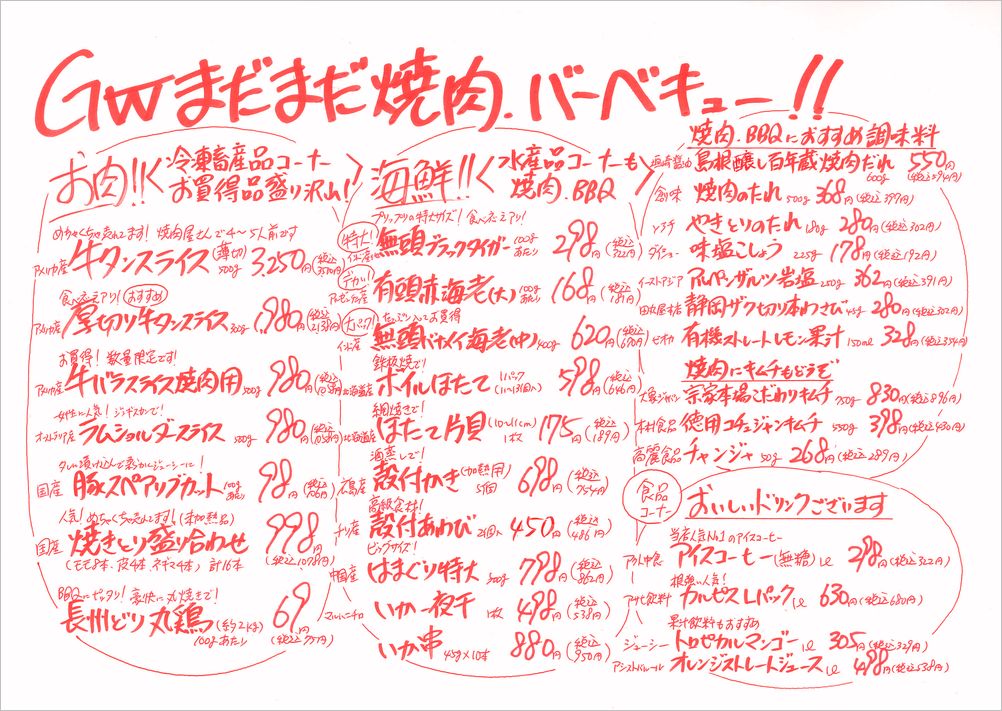 GWまだまだ焼肉.バーベキュー!!
お肉!!
冷凍畜産品コーナー
お買得品盛り沢山!
めちゃくちゃ売れてます! 焼肉屋さんで4〜5人前です
アメリカ産 牛タンスライス(薄切) 500g 3,250円(税込3510円)
食べ応えアリ! おすすめ
アメリカ産 厚切り牛タンスライス 300g 1,980円(税込2138円)
お買得! 数量限定です!
アメリカ産 牛バラスライス焼肉用 500g 980円(税込1058円)
女性に人気! ジンギスカンで!
オーストラリア産 ラムショルダースライス 500g 980円(税込1058円)
タレに漬け込んで柔らかジューシーに!
国産 豚スペアリブカット 100gあたり 98円(税込106円)
人気! めちゃくちゃ売れてます! (未加熱品)
国産 焼きとり盛り合わせ 998円(税込1078円)
(モモ8本・皮4本・ネギマ4本) 計16本
BBQにピッタリ! 豪快に丸焼きで!
長州どり 丸鶏 (約2kg) 100gあたり 69円(税込75円)
海鮮!!
水産品コーナーも
焼肉.BBQ
プリップリの特大サイズ! 食べ応えアリ!
特大! インド産 無頭ブラックタイガー 100gあたり 298円(税込322円)
デカい! アルゼンチン産 有頭赤海老(大) 100gあたり 168円(税込181円)
大パック! たっぷり入ってお買得
インド産 無頭バナメイ海老(中) 400g 620円(税込670円)
鉄板焼で!
北海道産 ボイルほたて 1パック 598円(税込646円)
網焼きで!
北海道産 ほたて片貝 (10〜11cm) 1枚 175円(税込189円)
酒蒸しで!
広島産 殻付かき(加熱用) 5個 698円(税込754円)
高級食材!
チリ産 殻付あわび 2個入 450円(税込486円)
ビッグサイズ!
中国産 はまぐり特大 500g 798円(税込862円)
いか一夜干 1枚 498円(税込538円)
いか串 45g×10本 880円(税込950円)
焼肉.BBQにおすすめ調味料
島根醸し百年蔵焼肉だれ 600g 550円(税込594円)
創味 焼肉のたれ 500g 368円(税込397円)
やきとりのたれ 180g 280円(税込302円)
ダイショー 味塩こしょう 225g 178円(税込192円)
イーストアジア アルペンザルツ岩塩 362円(税込391円)
田丸屋本店 静岡ザクっ切り本わさび 45g 280円(税込302円)
セオカ 有機ストレートレモン果汁 150ml 328円(税込354円)
焼肉にキムチもどうぞ
大象ジャパン 宗家本場こだわりキムチ 750g 830円(税込896円)
木村食品 徳用コチュジャンキムチ 550g 398円(税込430円)
高麗食品 チャンジャ 50g 268円(税込289円)
食品コーナー
おいしいドリンクございます
当店人気No.1のアイスコーヒー
アートコーヒー アイスコーヒー(無糖) 1ℓ 298円(税込322円)
根強い人気!
アサヒ飲料 カルピスLパック 1ℓ 630円(税込680円)
果汁飲料もおすすめ
ジューシー トロピカルマンゴー 1ℓ 305円(税込329円)
アシストバルール オレンジストレートジュース 1ℓ 498円(税込538円)
マルハニチロ